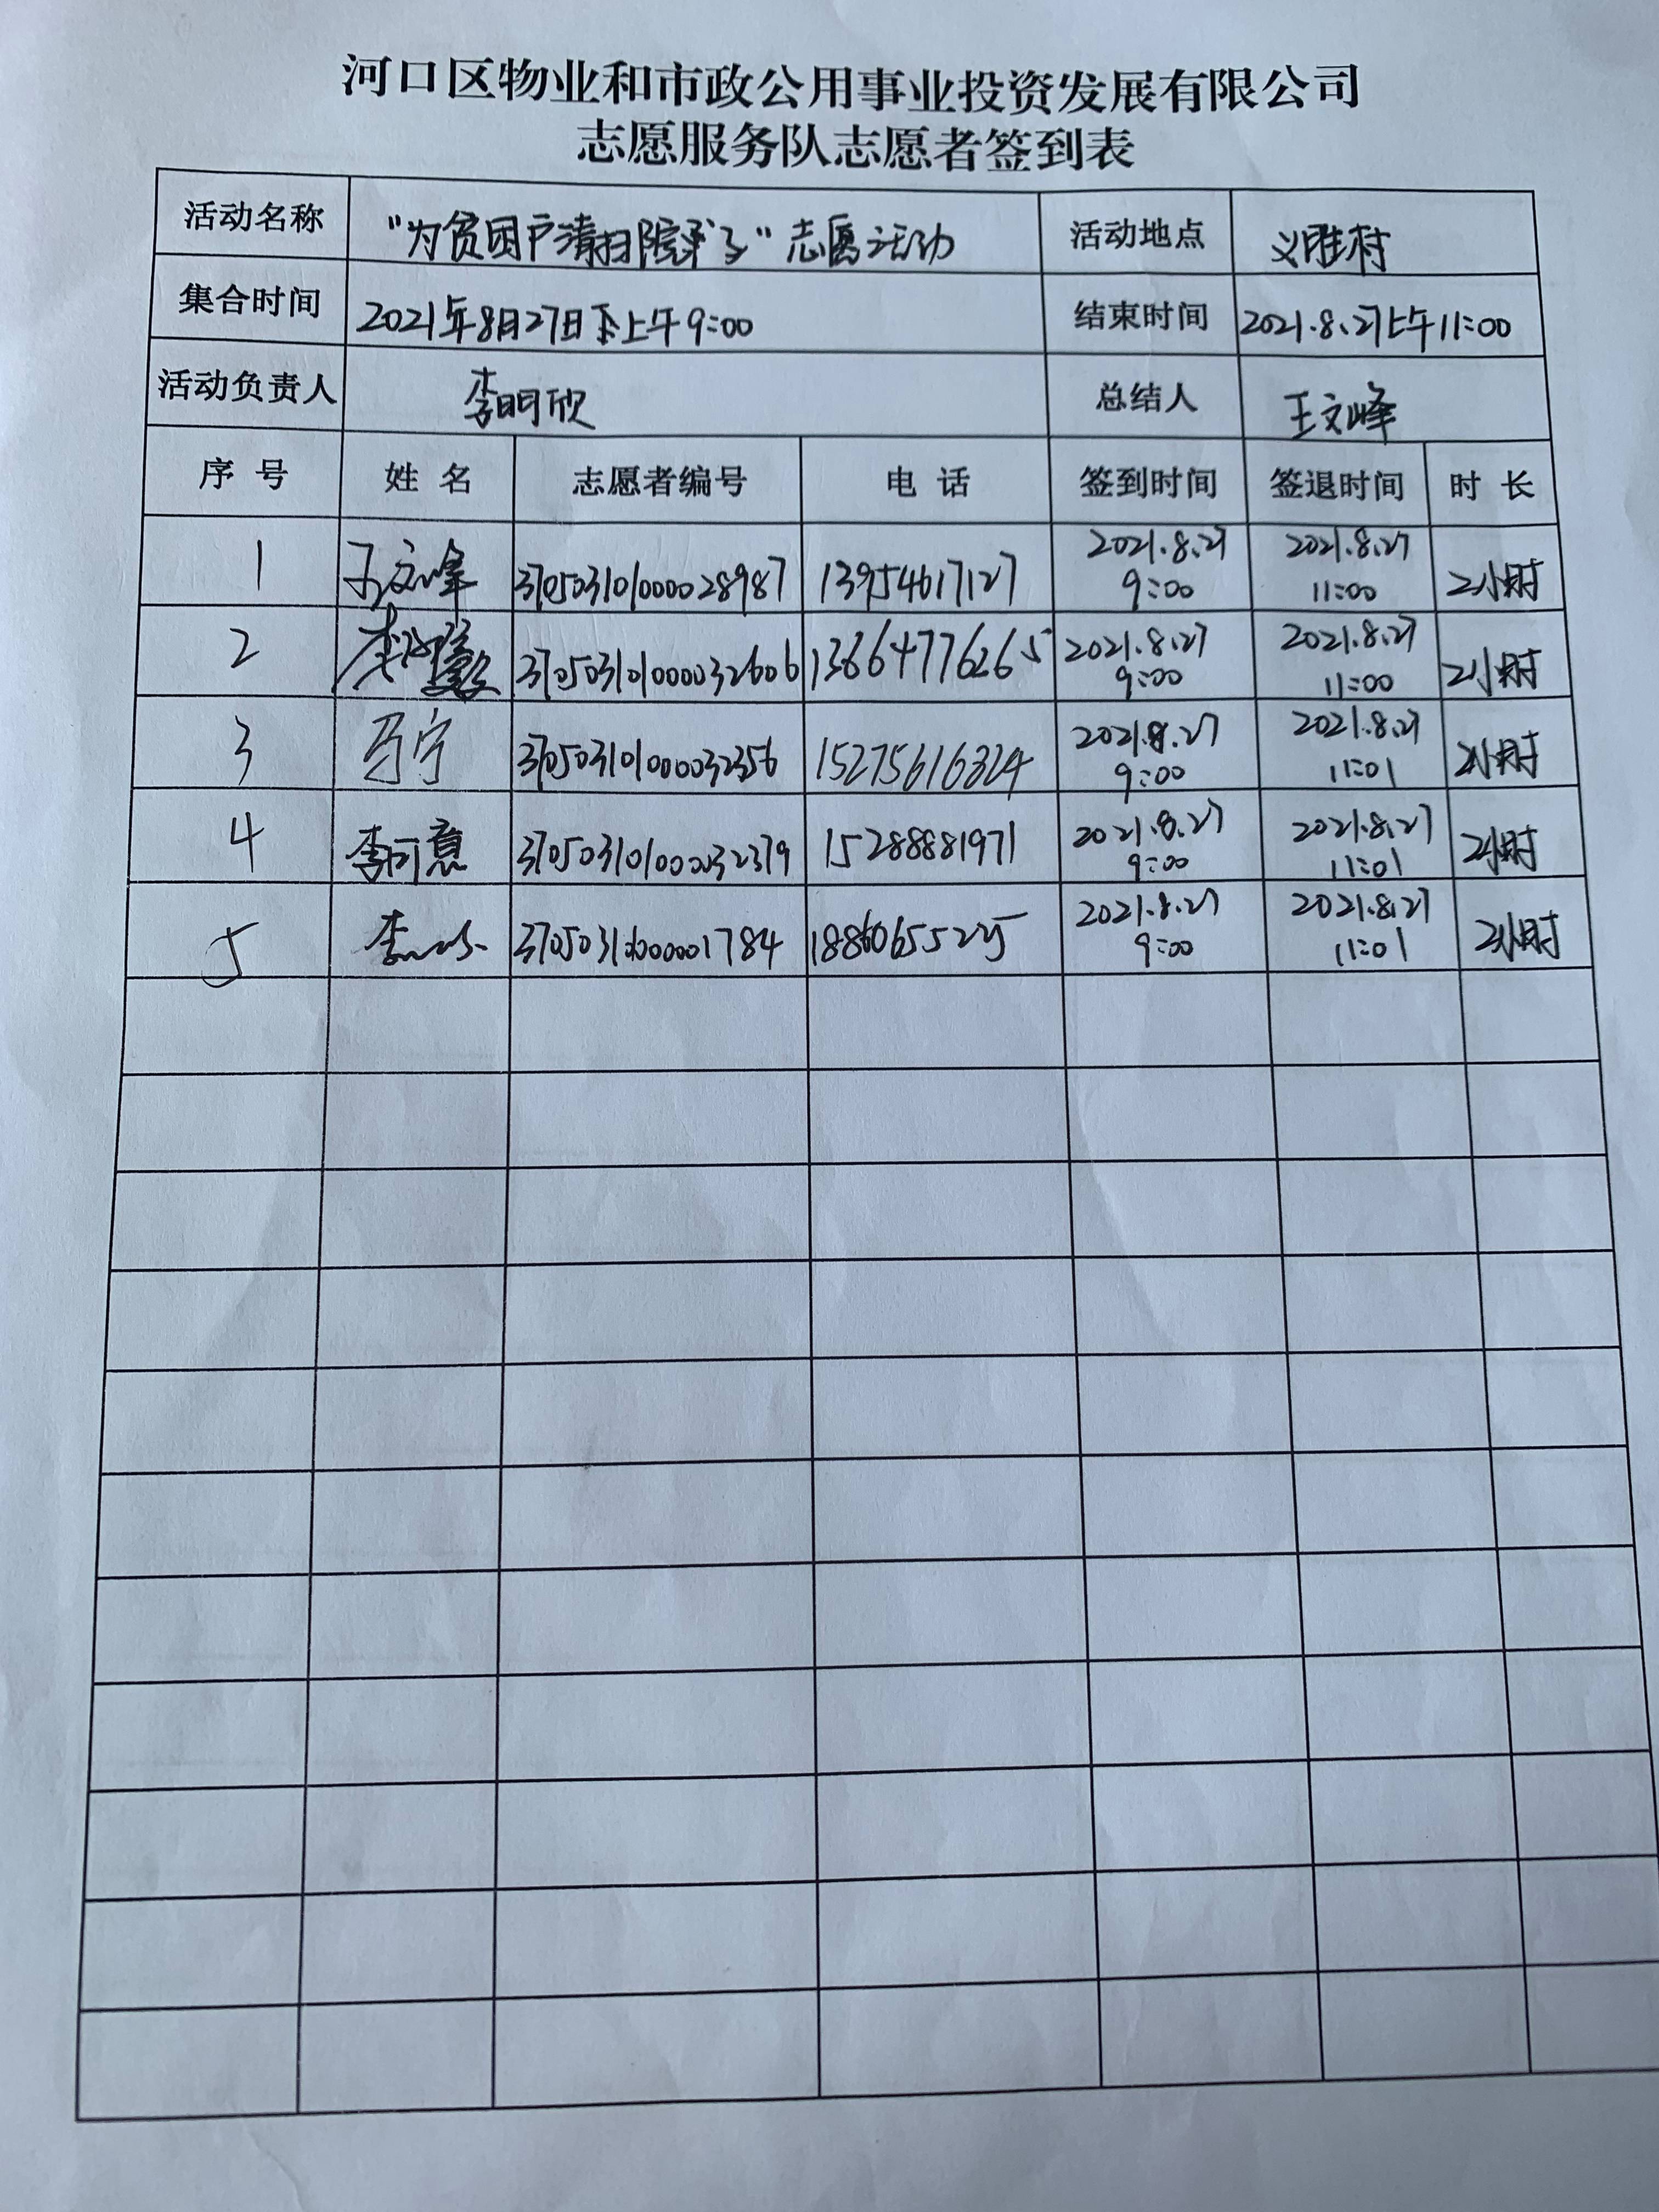 河口区物业和市政公用事业投资发展有限公司
志愿服务队志愿者签到表
活动名称 "为贫困户清扫院子"志愿活动 活动地点 义胜村
集合时间 2021年8月27日上午9:00 结束时间 2021.8.27上午11:00
活动负责人 李明欣 总结人 王文峰
序 号 姓 名 志愿者编号 电 话 签到时间 签退时间 时 长
1 王文峰 3705031010000028987 13954617127 2021.8.27 9:00 2021.8.27 11:00 2小时
2 3705031010000032606 13864776265 2021.8.27 9:00 2021.8.27 11:00 2小时
3 马宁 3705031010000032356 15275616324 2021.8.27 9:00 2021.8.27 11:01 2小时
4 李可意 3705031010000032379 15288881971 2021.8.27 9:00 2021.8.27 11:01 2小时
5 2021.8.27 9:00 2021.8.27 11:01 2小时